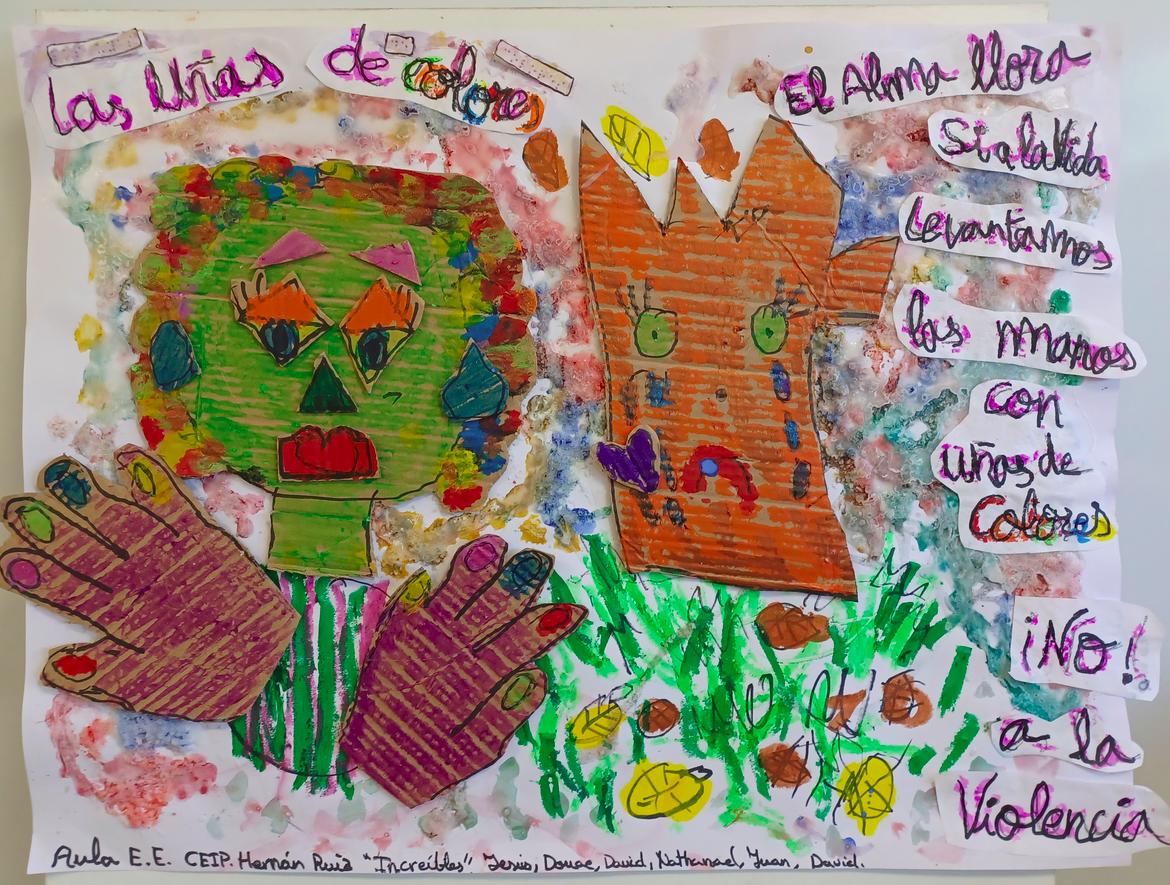 Las Uñas de colores
El Alma llora
Si a la Vida
Levantamos
las manos
con
uñas de
Colores
¡NO!
a la
Violencia
Aula E.E. CEIP. Hernán Ruiz "Increíbles" Jesús, Douae, David, Nathanael, Juan, David.